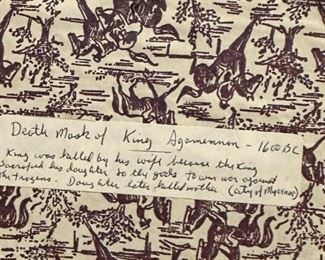 Death Mask of King Agamemnon - 1600 BC
King was killed by his wife because the King
sacrificed his daughter to the gods to win war against
the trojans. Daughter later killed mother (City of Mycenae)